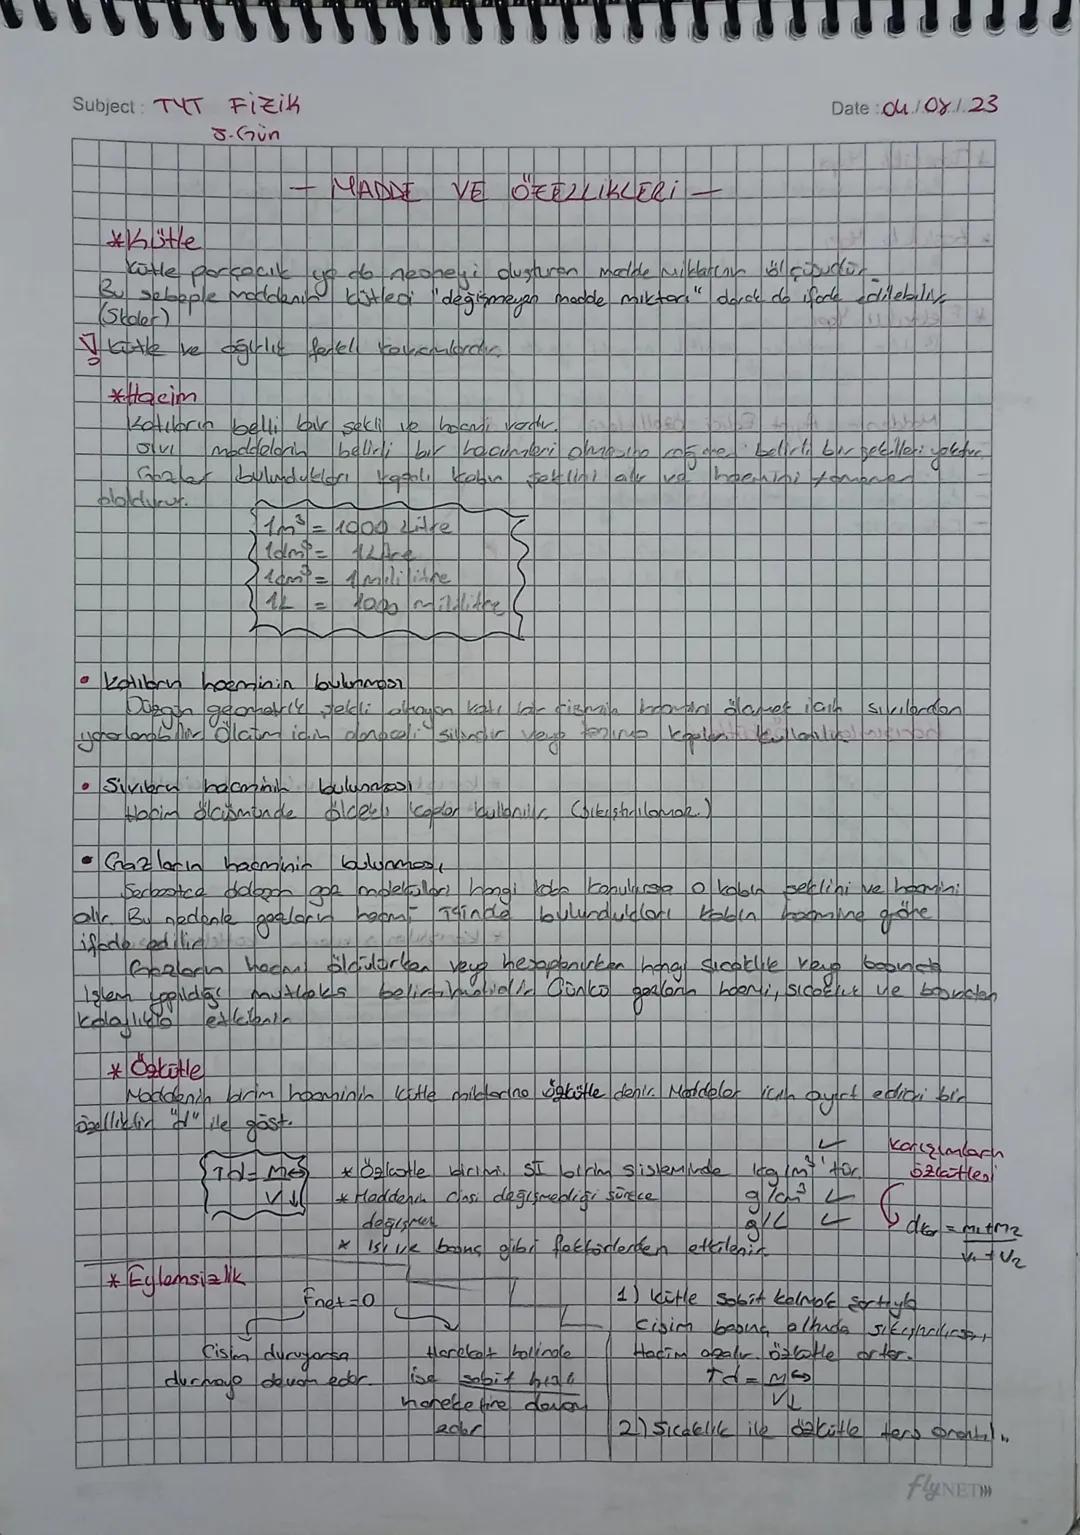 Subject: TYT Fizik
Date: 04/08/23
5.Gün
— MADDE VE ÖZELLİKLERİ —
*Kütle
Kütle parçacık ya da nesneyi oluşturan madde miktarının ölçüsüdür.
Bu sebeple maddenin kütlesi "değişmeyen madde miktarı" olarak da ifade edilebilir
(Skaler)
Kütle ve ağırlık farklı kavramlardır.
*Hacim
Katıların belli bir şekli ve hacmi vardır.
Sıvı maddelerin belirli bir hacimleri olmasına rağmen belirli bir şekilleri yoktur
Gazlar bulundukları kapalı kabın şeklini alır ve hacmini tamamen
doldurur.
1m³ = 1000 Litre
1dm³ = 1 Litre
1cm³ = 1 mililitre
1L = 1000 mililitre
• Katıların hacminin bulunması
Düzgün geometrik şekli olmayan katı bir cismin hacmini ölçmek için sıvılardan
yararlanabilir. Ölçüm için dereceli silindir veya taşırma kapları kullanılır.
• Sıvıların hacminin bulunması
Hacim ölçümünde ölçekli kaplar kullanılır. (Sıkıştırılamaz.)
• Gazların hacminin bulunması
Serbestçe dolaşan gaz molekülleri hangi kaba konulursa o kabın şeklini ve hacmini
alır. Bu nedenle gazların hacmi içinde bulundukları kabın hacmine göre
ifade edilir
Gazların hacmi ölçülürken veya hesaplanırken hangi sıcaklık veya basınçta
işlem yapıldığı mutlaka belirtilmelidir. Çünkü gazların hacmi, sıcaklık ve basınçtan
kolaylıkla etkilenir
* Özkütle
Maddenin birim hacminin kütle miktarına özkütle denir. Maddeler için ayırt edici bir
özelliktir "d" ile göst.
↑d = m↔
V↓
* Özkütle birimi SI birim sisteminde kg/m³ 'tür.
g/cm³
g/L
* Maddenin cinsi değişmediği sürece
değişmez
* Isı ve basınç gibi faktörlerden etkilenir
Karışımların
özkütlesi
dkar = m1+m2
V1+V2
* Eylemsizlik
Fnet=0
Cisim duruyorsa
durmaya devam eder.
Hareket halinde
ise sabit hızlı
hareketine devam
eder
1) Kütle sabit kalmak şartıyla
cisim basınç altında sıkıştırılırsa,
Hacim azalır. özkütle artar.
↑d = m↔
V↓
2) Sıcaklık ile özkütle ters orantılı..
flyNET